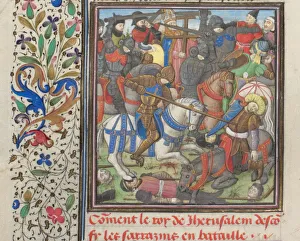 Coment le roy de Jherusalem desco
fy les sarrazins en bataille